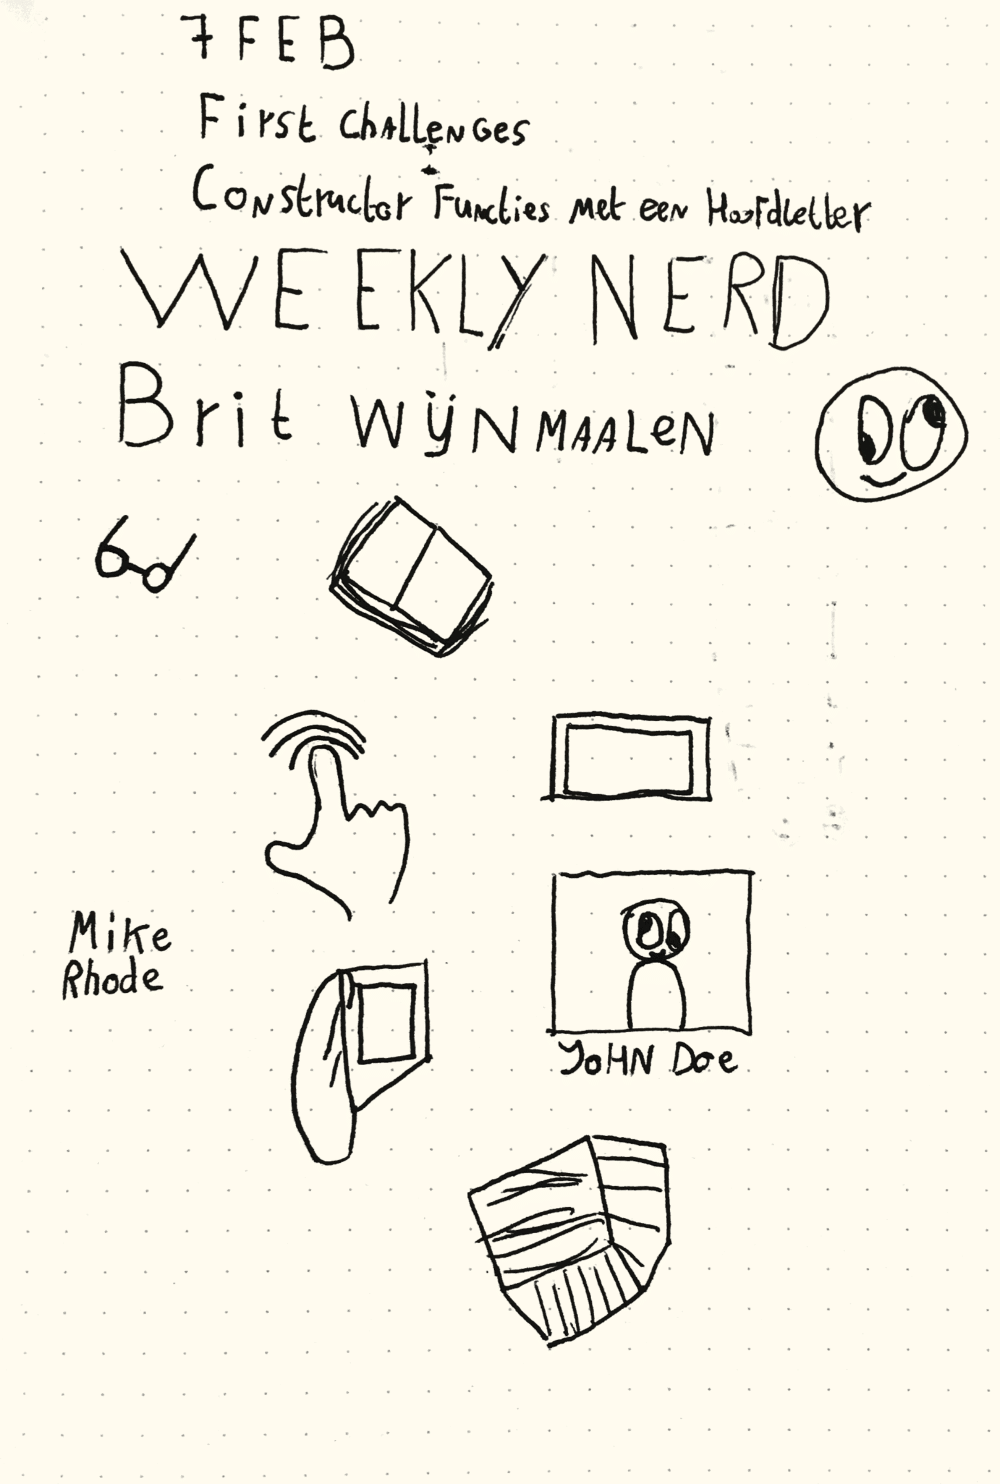 7 FEB
First Challenges
Constructor Functies met een Hoofdletter
WEEKLY NERD
Brit Wijnmaalen
Mike
Rhode
John Doe